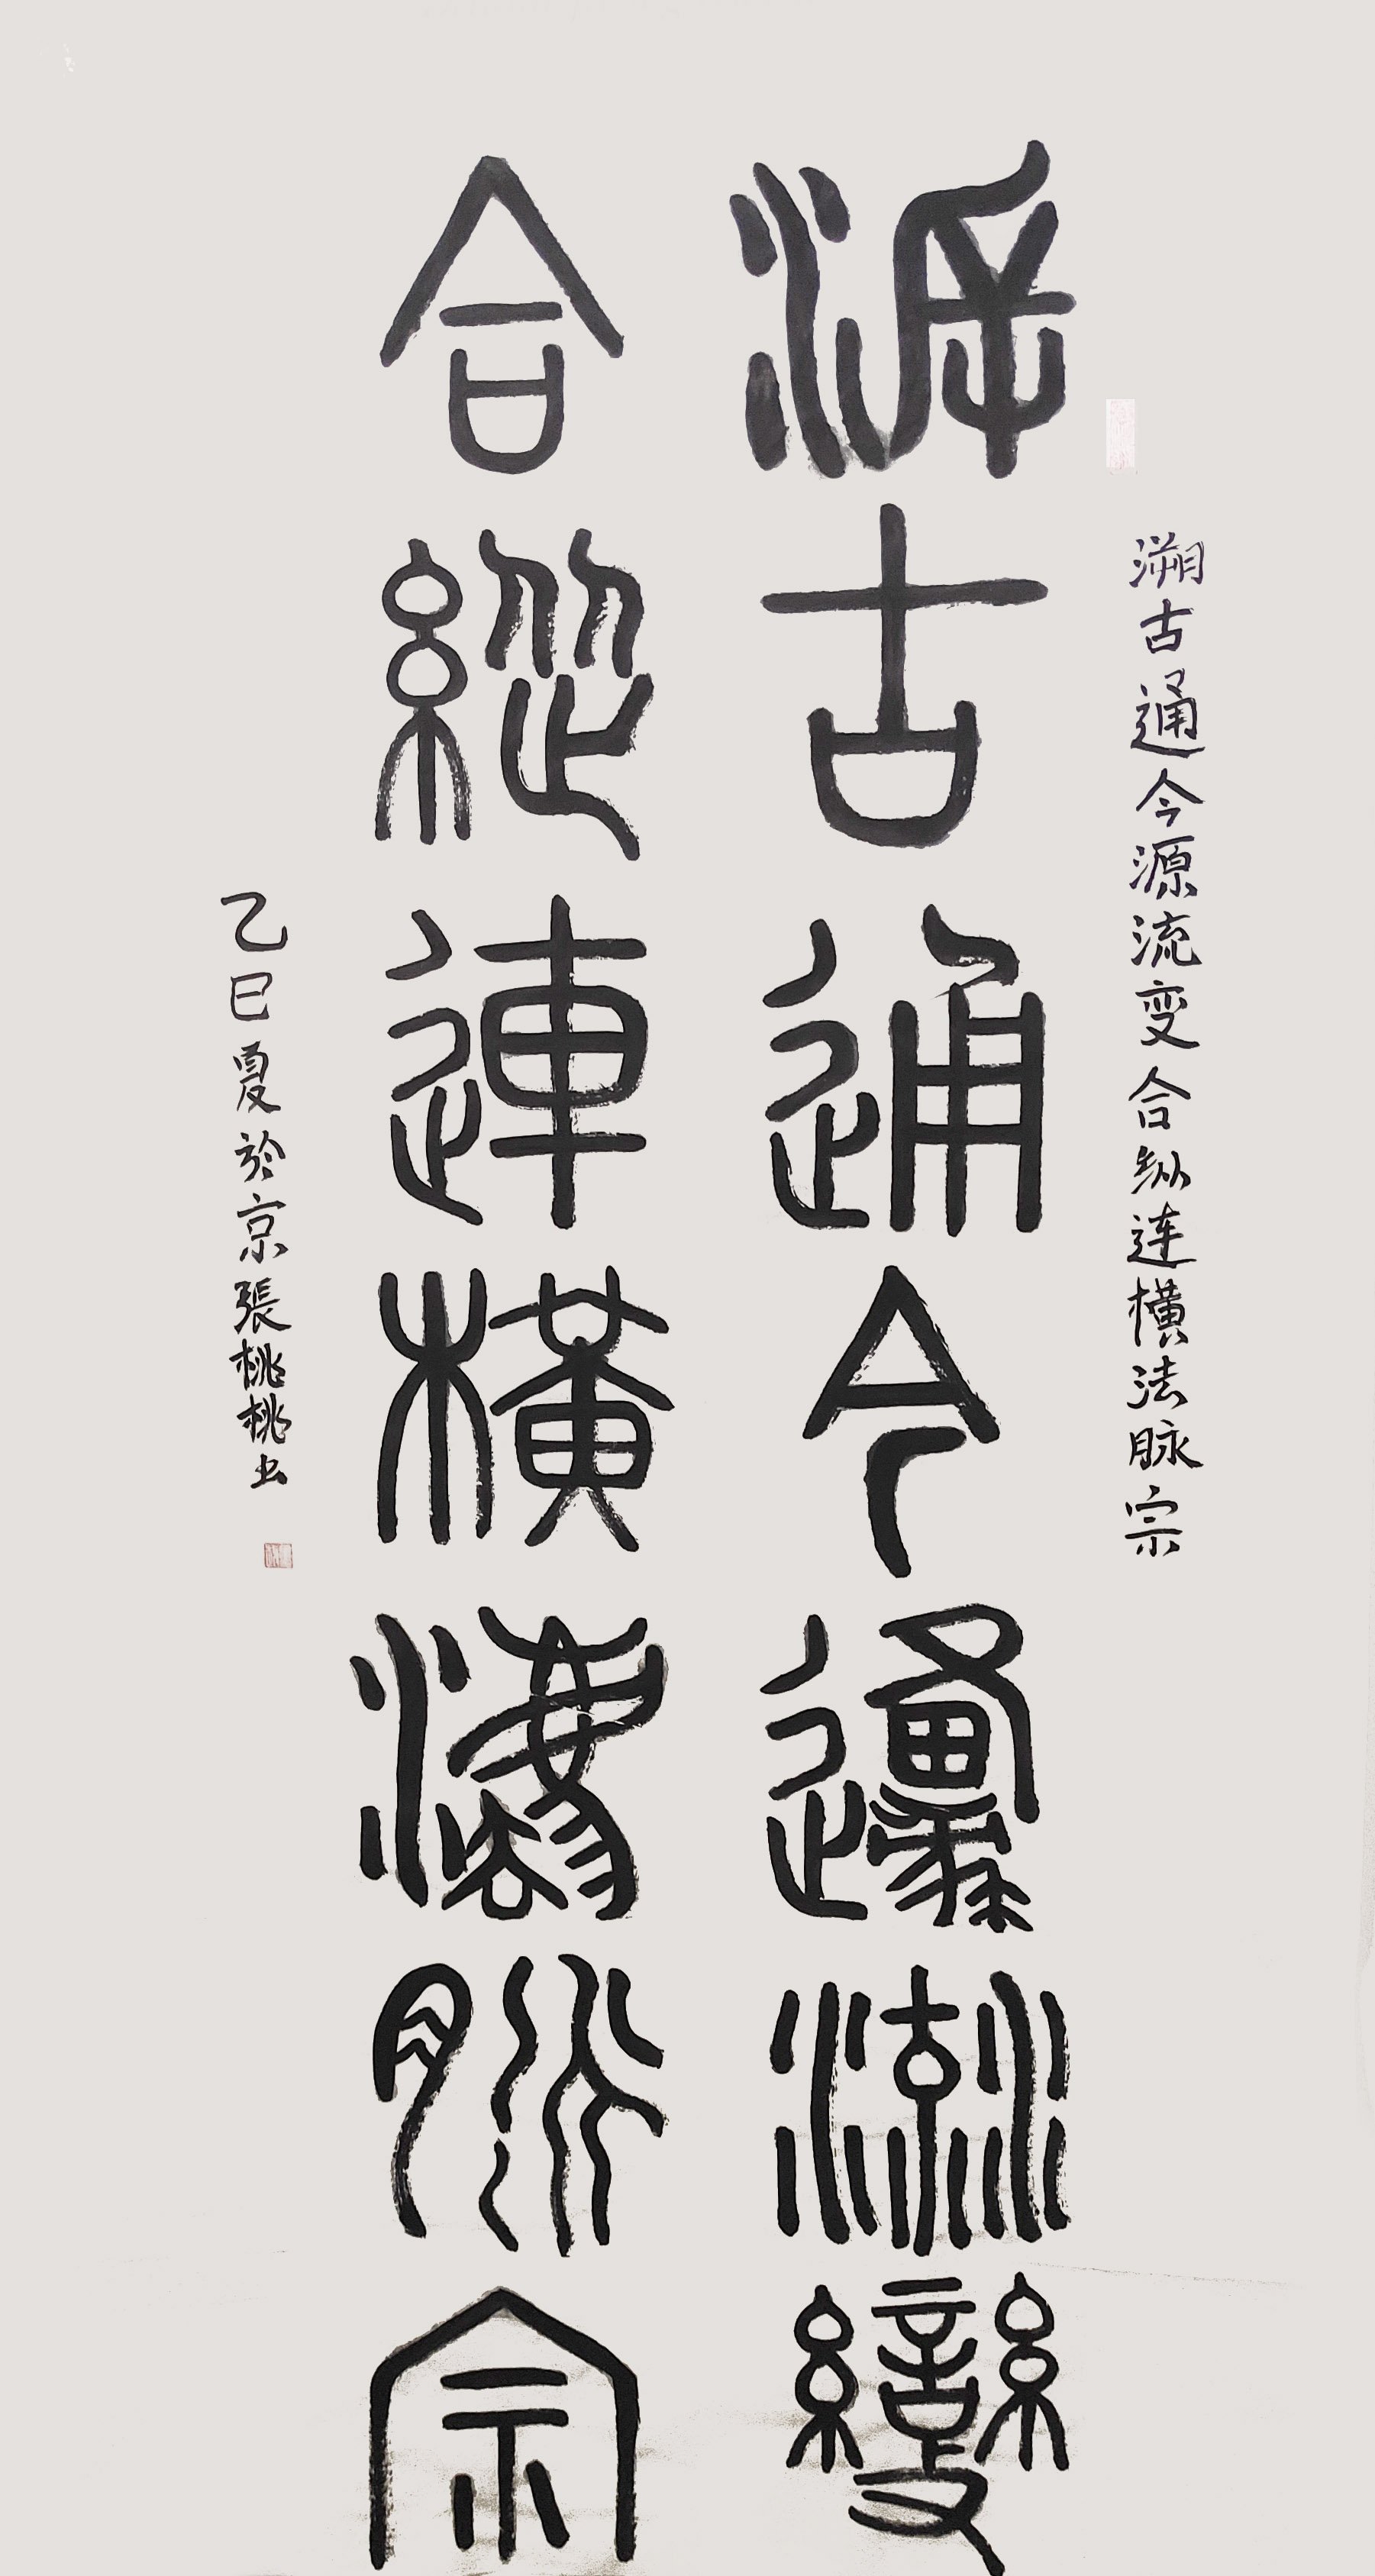 溯古通今源流变合纵连横法脉宗
㴑古通今邍流變
合縱連橫灋脈宗
乙巳夏於京張桃桃书